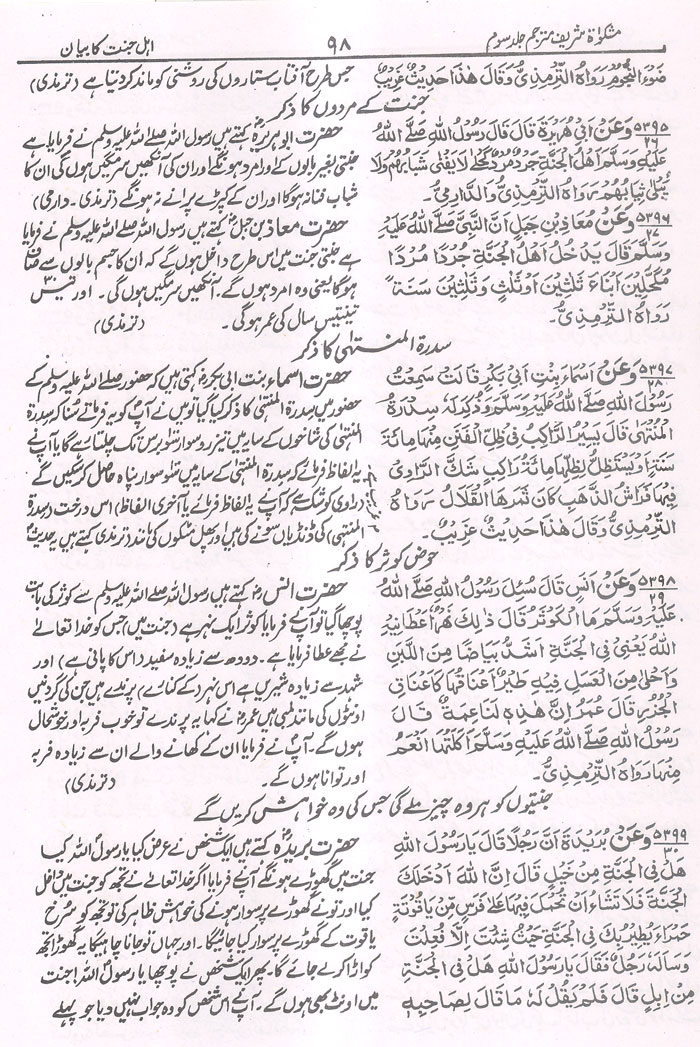 مشکوٰۃ شریف مترجم جلد سوم
۹۸
اہل جنت کا بیان
ضَوْءَ النُّجُوْمِ رَوَاهُ التِّرْمِذِيُّ وَقَالَ هٰذَا حَدِيْثٌ غَرِيْبٌ
جس طرح آفتاب ستاروں کی روشنی کو ماند کر دیتا ہے (ترمذی)
جنت کے مردوں کا ذکر
۵۳۹۵ ۲۶ وَعَنْ اَبِیْ هُرَيْرَةَ قَالَ قَالَ رَسُوْلُ اللهِ صَلَّى اللهُ
عَلَيْهِ وَسَلَّمَ اَهْلُ الْجَنَّةِ جُرْدٌ مُرْدٌ كَحْلٰى لَا يَفْنٰى شَبَابُهُمْ وَلَا
يَبْلٰى ثِيَابُهُمْ رَوَاهُ التِّرْمِذِيُّ وَالدَّارِمِيُّ۔
حضرت ابوہریرہؓ کہتے ہیں رسول اللہ صلے اللہ علیہ وسلم نے فرمایا ہے
جنتی بغیر بالوں کے اور امرد ہونگے اور ان کی آنکھیں سرمگیں ہوں گی ان کا
شباب فنا نہ ہوگا اور ان کے کپڑے پرانے نہ ہونگے (ترمذی۔ دارمی)
۵۳۹۶ ۲۷ وَعَنْ مُعَاذِ بْنِ جَبَلٍ اَنَّ النَّبِيَّ صَلَّى اللهُ عَلَيْهِ
وَسَلَّمَ قَالَ يَدْخُلُ اَهْلُ الْجَنَّةِ جُرْدًا مُرْدًا
مُكَحَّلِيْنَ اَبْنَاءَ ثَلٰثِيْنَ اَوْ ثَلٰثٍ وَّثَلٰثِيْنَ سَنَةً
رَوَاهُ التِّرْمِذِيُّ۔
حضرت معاذ بن جبلؓ کہتے ہیں رسول اللہ صلے اللہ علیہ وسلم نے فرمایا
ہے جنتی جنت میں اس طرح داخل ہوں گے کہ ان کا جسم بالوں سے صاف
ہوگا یعنی وہ امرد ہوں گے۔ آنکھیں سرمگیں ہوں گی۔ اور تیس
تینتیس سال کی عمر ہوگی۔ (ترمذی)
سدرۃ المنتہیٰ کا ذکر
۵۳۹۷ ۲۸ وَعَنْ اَسْمَاءَ بِنْتِ اَبِیْ بَكْرٍ قَالَتْ سَمِعْتُ
رَسُوْلَ اللهِ صَلَّى اللهُ عَلَيْهِ وَسَلَّمَ وَذُكِرَ لَهٗ سِدْرَةُ
الْمُنْتَهٰى قَالَ يَسِيْرُ الرَّاكِبُ فِیْ ظِلِّ الْفَنَنِ مِنْهَا مِائَةَ
سَنَةٍ اَوْ يَسْتَظِلُّ بِظِلِّهَا مِائَةُ رَاكِبٍ شَكَّ الرَّاوِیْ
فِيْهَا فَرَاشُ الذَّهَبِ كَاَنَّ ثَمَرَهَا الْقِلَالُ رَوَاهُ
التِّرْمِذِيُّ وَقَالَ هٰذَا حَدِيْثٌ غَرِيْبٌ۔
حضرت اسماء بنت ابی بکرؓ کہتی ہیں کہ حضور صلے اللہ علیہ وسلم کے
حضور میں سدرۃ المنتہیٰ کا ذکر کیا گیا تو میں نے آپؐ کو یہ فرماتے سُنا کہ سدرۃ
المنتہیٰ کی شاخوں کے سایہ میں تیز رو سوار سو برس تک چلتا ہے گا یا آپ نے
یہ الفاظ فرمائے کہ سدرۃ المنتہیٰ کے سایہ میں سو سوار پناہ حاصل کر سکیں گے
(راوی کو شک ہے کہ آپ نے یہ الفاظ فرمائے یا آخری الفاظ) اس درخت (سدرۃ
المنتہیٰ) کی ڈنڈیاں سونے کی ہیں اور پھل مٹکوں کی مانند (ترمذی کہتے ہیں یہ حدیث
حوض کوثر کا ذکر
۵۳۹۸ ۲۹ وَعَنْ اَنَسٍ قَالَ سُئِلَ رَسُوْلُ اللهِ صَلَّى اللهُ
عَلَيْهِ وَسَلَّمَ مَا الْكَوْثَرُ قَالَ ذٰلِكَ نَهْرٌ اَعْطَانِيْهِ
اللهُ يَعْنِیْ فِی الْجَنَّةِ اَشَدُّ بَيَاضًا مِنَ اللَّبَنِ
وَاَحْلٰى مِنَ الْعَسَلِ فِيْهِ طَيْرٌ اَعْنَاقُهَا كَاَعْنَاقِ
الْجُزُرِ قَالَ عُمَرُ اِنَّ هٰذِهٖ لَنَاعِمَةٌ قَالَ
رَسُوْلُ اللهِ صَلَّى اللهُ عَلَيْهِ وَسَلَّمَ اَكَلَتُهَا اَنْعَمُ
مِنْهَا رَوَاهُ التِّرْمِذِيُّ۔
حضرت انسؓ کہتے ہیں رسول اللہ صلے اللہ علیہ وسلم سے کوثر کی بابت
پوچھا گیا تو آپ نے فرمایا کوثر ایک نہر ہے (جنت میں) جس کو خدا تعالےٰ
نے مجھے عطا فرمایا ہے۔ دودھ سے زیادہ سفید (اس کا پانی ہے) اور
شہد سے زیادہ شیریں ہے اس نہر (کے کنارے) پرندے ہیں جن کی گردنیں
اونٹوں کی مانند لمبی ہیں عمرؓ نے کہا یہ پرندے تو خوب فربہ اور خوشحال
ہوں گے۔ آپؐ نے فرمایا ان کے کھانے والے ان سے زیادہ فربہ
اور توانا ہوں گے۔ (ترمذی)
جنتیوں کو ہر وہ چیز ملے گی جس کی وہ خواہش کریں گے
۵۳۹۹ ۳۰ وَعَنْ بُرَيْدَةَ اَنَّ رَجُلًا قَالَ يَا رَسُوْلَ اللهِ
هَلْ فِی الْجَنَّةِ مِنْ خَيْلٍ قَالَ اِنِ اللهُ اَدْخَلَكَ
الْجَنَّةَ فَلَا تَشَاءُ اَنْ تُحْمَلَ فِيْهَا عَلٰى فَرَسٍ مِّنْ يَاقُوْتَةٍ
حَمْرَاءَ يَطِيْرُ بِكَ فِی الْجَنَّةِ حَيْثُ شِئْتَ اِلَّا فَعَلْتَ
وَسَاَلَهٗ رَجُلٌ فَقَالَ يَا رَسُوْلَ اللهِ هَلْ فِی الْجَنَّةِ
مِنْ اِبِلٍ قَالَ فَلَمْ يَقُلْ لَهٗ مَا قَالَ لِصَاحِبِهٖ
حضرت بریدہؓ کہتے ہیں ایک شخص نے عرض کیا یا رسول اللہ کیا
جنت میں گھوڑے ہونگے آپ نے فرمایا اگر خدا تعالےٰ نے تجھ کو جنت میں داخل
کیا اور تو نے گھوڑے پر سوار ہونے کی خواہش ظاہر کی تو تجھ کو سُرخ
یاقوت کے گھوڑے پر سوار کیا جائیگا۔ اور جہاں تو جانا چاہیگا یہ گھوڑا تجھ
کو اڑا کر لے جائے گا۔ پھر ایک شخص نے پوچھا یا رسول اللہ! جنت
میں اونٹ بھی ہوں گے۔ آپ نے اس شخص کو وہ جواب نہیں دیا جو پہلے